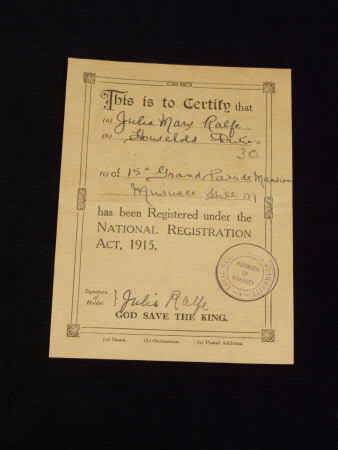 This is to Certify that
(a) Julia Mary Ralfe
(b) Household Duties
30
(c) of 15a Grand Parade Mansions
Muswell Hill N
has been Registered under the
NATIONAL REGISTRATION
ACT, 1915.
BOROUGH
OF
HORNSEY
LOCAL REGISTRATION AUTHORITY
Signature
of
Holder. } Julia Ralfe
GOD SAVE THE KING.
(a) Name. (b) Occupation. (c) Postal Address.